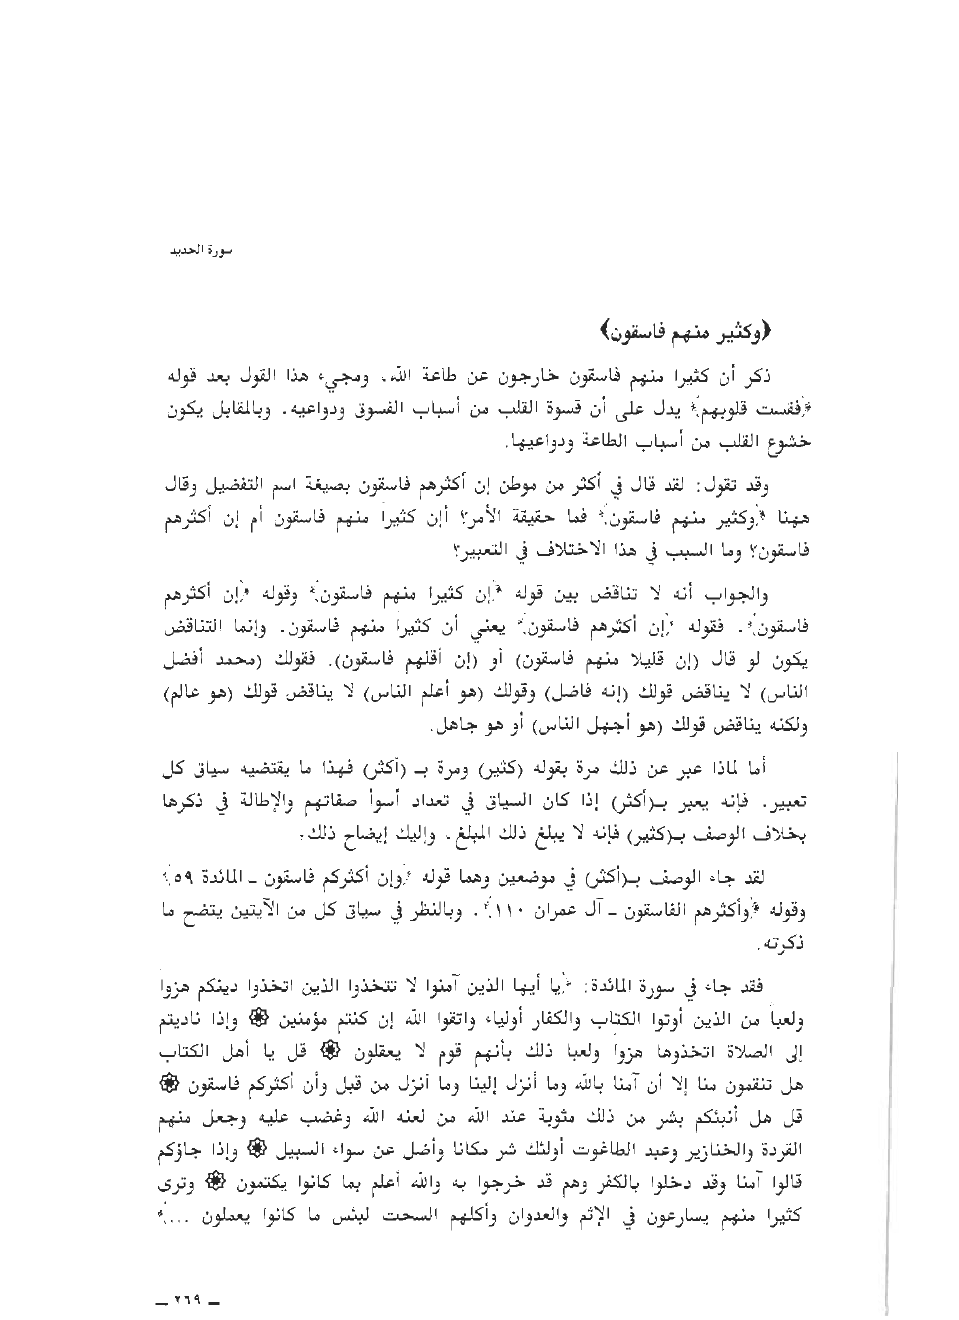 سورة الحديد
﴿وكثير منهم فاسقون﴾
ذكر أن كثيرا منهم فاسقون خارجون عن طاعة الله. ومجيء هذا القول بعد قوله
﴿فقست قلوبهم﴾ يدل على أن قسوة القلب من أسباب الفسوق ودواعيه. وبالمقابل يكون
خشوع القلب من أسباب الطاعة ودواعيها.
وقد تقول: لقد قال في أكثر من موطن إن أكثرهم فاسقون بصيغة اسم التفضيل وقال
ههنا ﴿وكثير منهم فاسقون﴾ فما حقيقة الأمر؟ أإن كثيراً منهم فاسقون أم إن أكثرهم
فاسقون؟ وما السبب في هذا الاختلاف في التعبير؟
والجواب أنه لا تناقض بين قوله ﴿إن كثيرا منهم فاسقون﴾ وقوله ﴿إن أكثرهم
فاسقون﴾. فقوله ﴿إن أكثرهم فاسقون﴾ يعني أن كثيراً منهم فاسقون. وإنما التناقض
يكون لو قال (إن قليلا منهم فاسقون) أو (إن أقلهم فاسقون). فقولك (محمد أفضل
الناس) لا يناقض قولك (إنه فاضل) وقولك (هو أعلم الناس) لا يناقض قولك (هو عالم)
ولكنه يناقض قولك (هو أجهل الناس) أو هو جاهل.
أما لماذا عبر عن ذلك مرة بقوله (كثير) ومرة بـ (أكثر) فهذا ما يقتضيه سياق كل
تعبير. فإنه يعبر بـ(أكثر) إذا كان السياق في تعداد أسوأ صفاتهم والإطالة في ذكرها
بخلاف الوصف بـ(كثير) فإنه لا يبلغ ذلك المبلغ. وإليك إيضاح ذلك:
لقد جاء الوصف بـ(أكثر) في موضعين وهما قوله ﴿وإن أكثركم فاسقون ـ المائدة ٥٩﴾
وقوله ﴿وأكثرهم الفاسقون ـ آل عمران ١١٠﴾. وبالنظر في سياق كل من الآيتين يتضح ما
ذكرته.
فقد جاء في سورة المائدة: ﴿يا أيها الذين آمنوا لا تتخذوا الذين اتخذوا دينكم هزوا
ولعباً من الذين أوتوا الكتاب والكفار أولياء واتقوا الله إن كنتم مؤمنين ۞ وإذا ناديتم
إلى الصلاة اتخذوها هزواً ولعبا ذلك بأنهم قوم لا يعقلون ۞ قل يا أهل الكتاب
هل تنقمون منا إلا أن آمنا بالله وما أنزل إلينا وما أنزل من قبل وأن أكثركم فاسقون ۞
قل هل أنبئكم بشر من ذلك مثوبة عند الله من لعنه الله وغضب عليه وجعل منهم
القردة والخنازير وعبد الطاغوت أولئك شر مكانا وأضل عن سواء السبيل ۞ وإذا جاؤكم
قالوا آمنا وقد دخلوا بالكفر وهم قد خرجوا به والله أعلم بما كانوا يكتمون ۞ وترى
كثيرا منهم يسارعون في الإثم والعدوان وأكلهم السحت لبئس ما كانوا يعملون ...﴾
ـ ٢٦٩ ـ